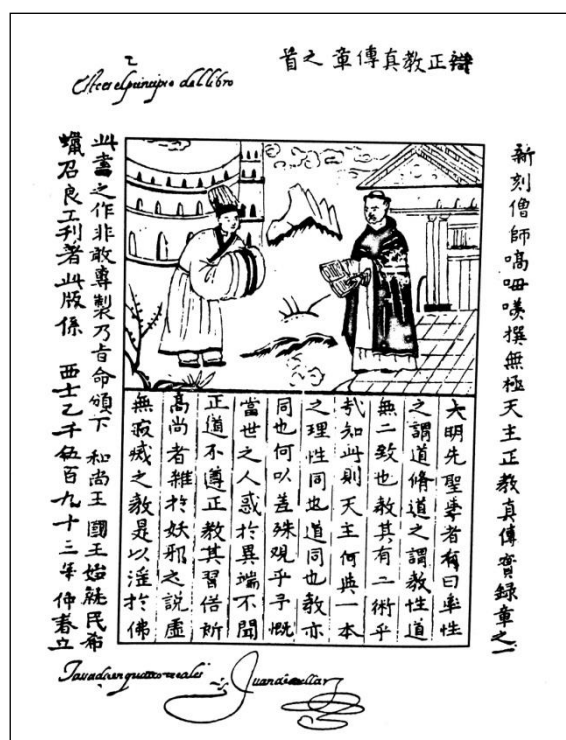 Este es el principio del libro
辯正教真傳章之首
新刻僧師嗃呣㖼撰無極天主正教真傳實錄章之一
大明先聖學者有曰率性
之謂道脩道之謂教性道
無二致也教其有二術乎
哉知此則天主何與一本
之理性同也道同也教亦
同也何以差殊观乎予慨
當世之人惑於異端不聞
正道不遵正教其習俗所
高尚者雜於妖邪之說虛
無寂滅之教是以淫於佛
此書之作非敢專製乃旨命頒下 和尚王 國王始就民希
蠟召良工刊著此版係 西士乙千伍百九十三年仲春立
Tassada en quatro reales
Juan de cuellar